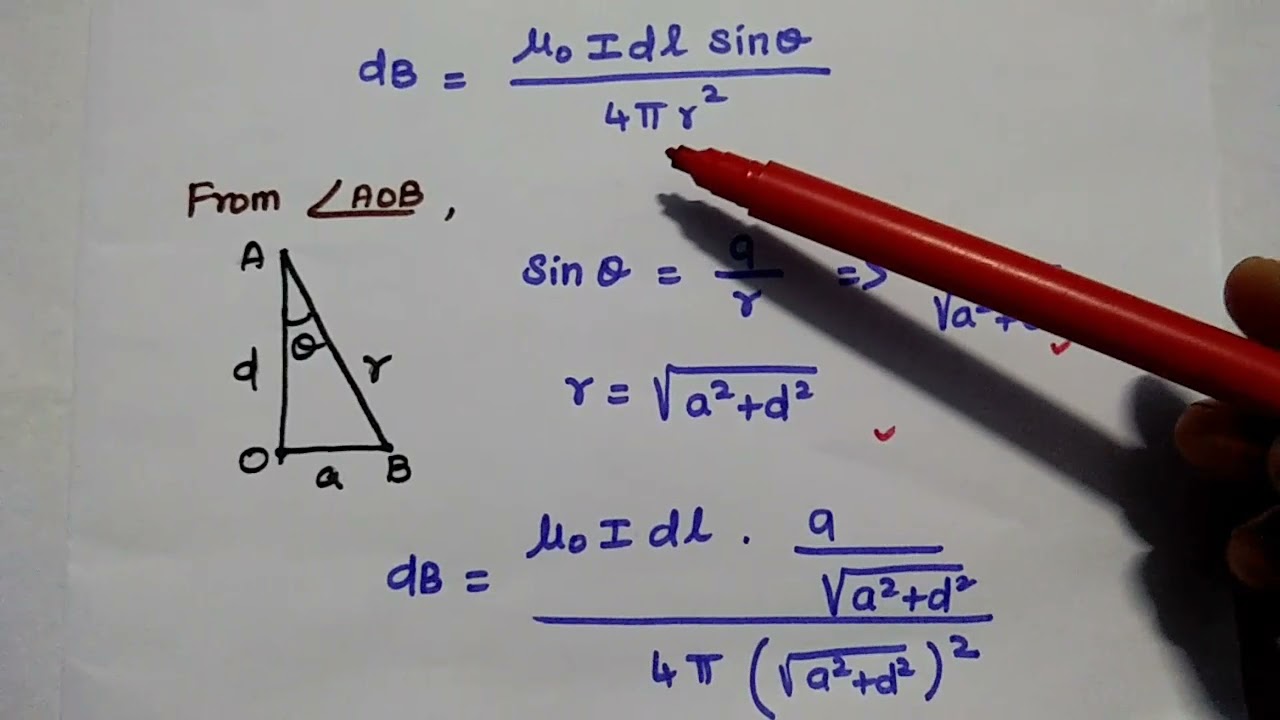 dB = μ₀ I dl sinθ
4π r²
From ∠AOB ,
A
sin θ = a/r =>
d θ r
r = √a²+d²
O a B
dB = μ₀ I dl . a/√a²+d²
4π (√a²+d²)²